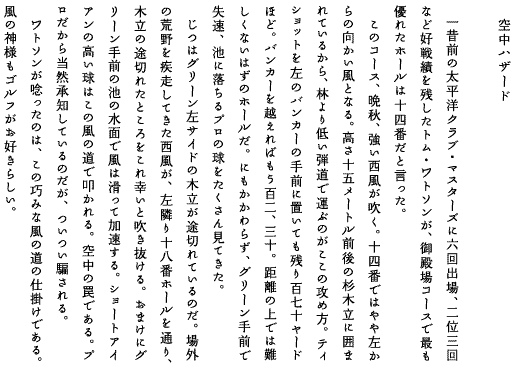 空中ハザード
一昔前の太平洋クラブ・マスターズに六回出場、二位三回
など好戦績を残したトム・ワトソンが、御殿場コースで最も
優れたホールは十四番だと言った。
このコース、晩秋、強い西風が吹く。十四番ではやや左か
らの向かい風となる。高さ十五メートル前後の杉木立に囲ま
れているから、林より低い弾道で運ぶのがここの攻め方。ティ
ショットを左のバンカーの手前に置いても残り百七十ヤード
ほど。バンカーを越えればもう百二、三十。距離の上では難
しくないはずのホールだ。にもかかわらず、グリーン手前で
失速、池に落ちるプロの球をたくさん見てきた。
じつはグリーン左サイドの木立が途切れているのだ。場外
の荒野を疾走してきた西風が、左隣り十八番ホールを通り、
木立の途切れたところをこれ幸いと吹き抜ける。おまけにグ
リーン手前の池の水面で風は滑って加速する。ショートアイ
アンの高い球はこの風の道で叩かれる。空中の罠である。プ
ロだから当然承知しているのだが、ついつい騙される。
ワトソンが唸ったのは、この巧みな風の道の仕掛けである。
風の神様もゴルフがお好きらしい。